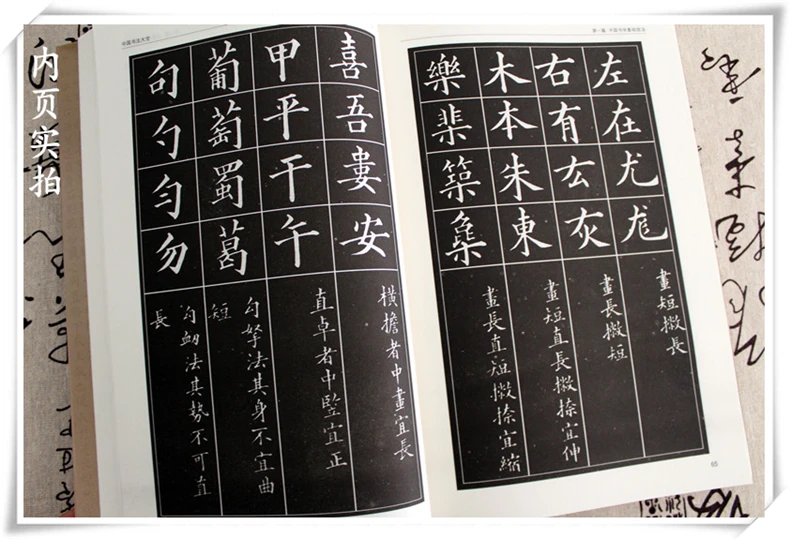 内页实拍
中国书法大字
左在尤尨
畫短撇長
右有厷灰
畫長撇短
木本朱東
畫短直長撇捺宜伸
樂棐築
畫長直短撇捺宜縮
65
喜吾婁安
橫擔者中畫宜長
甲平干午
直卓者中豎宜正
葡萄蜀葛
勾拏法其身不宜曲短
句勺勻勿
勾衄法其勢不可直長